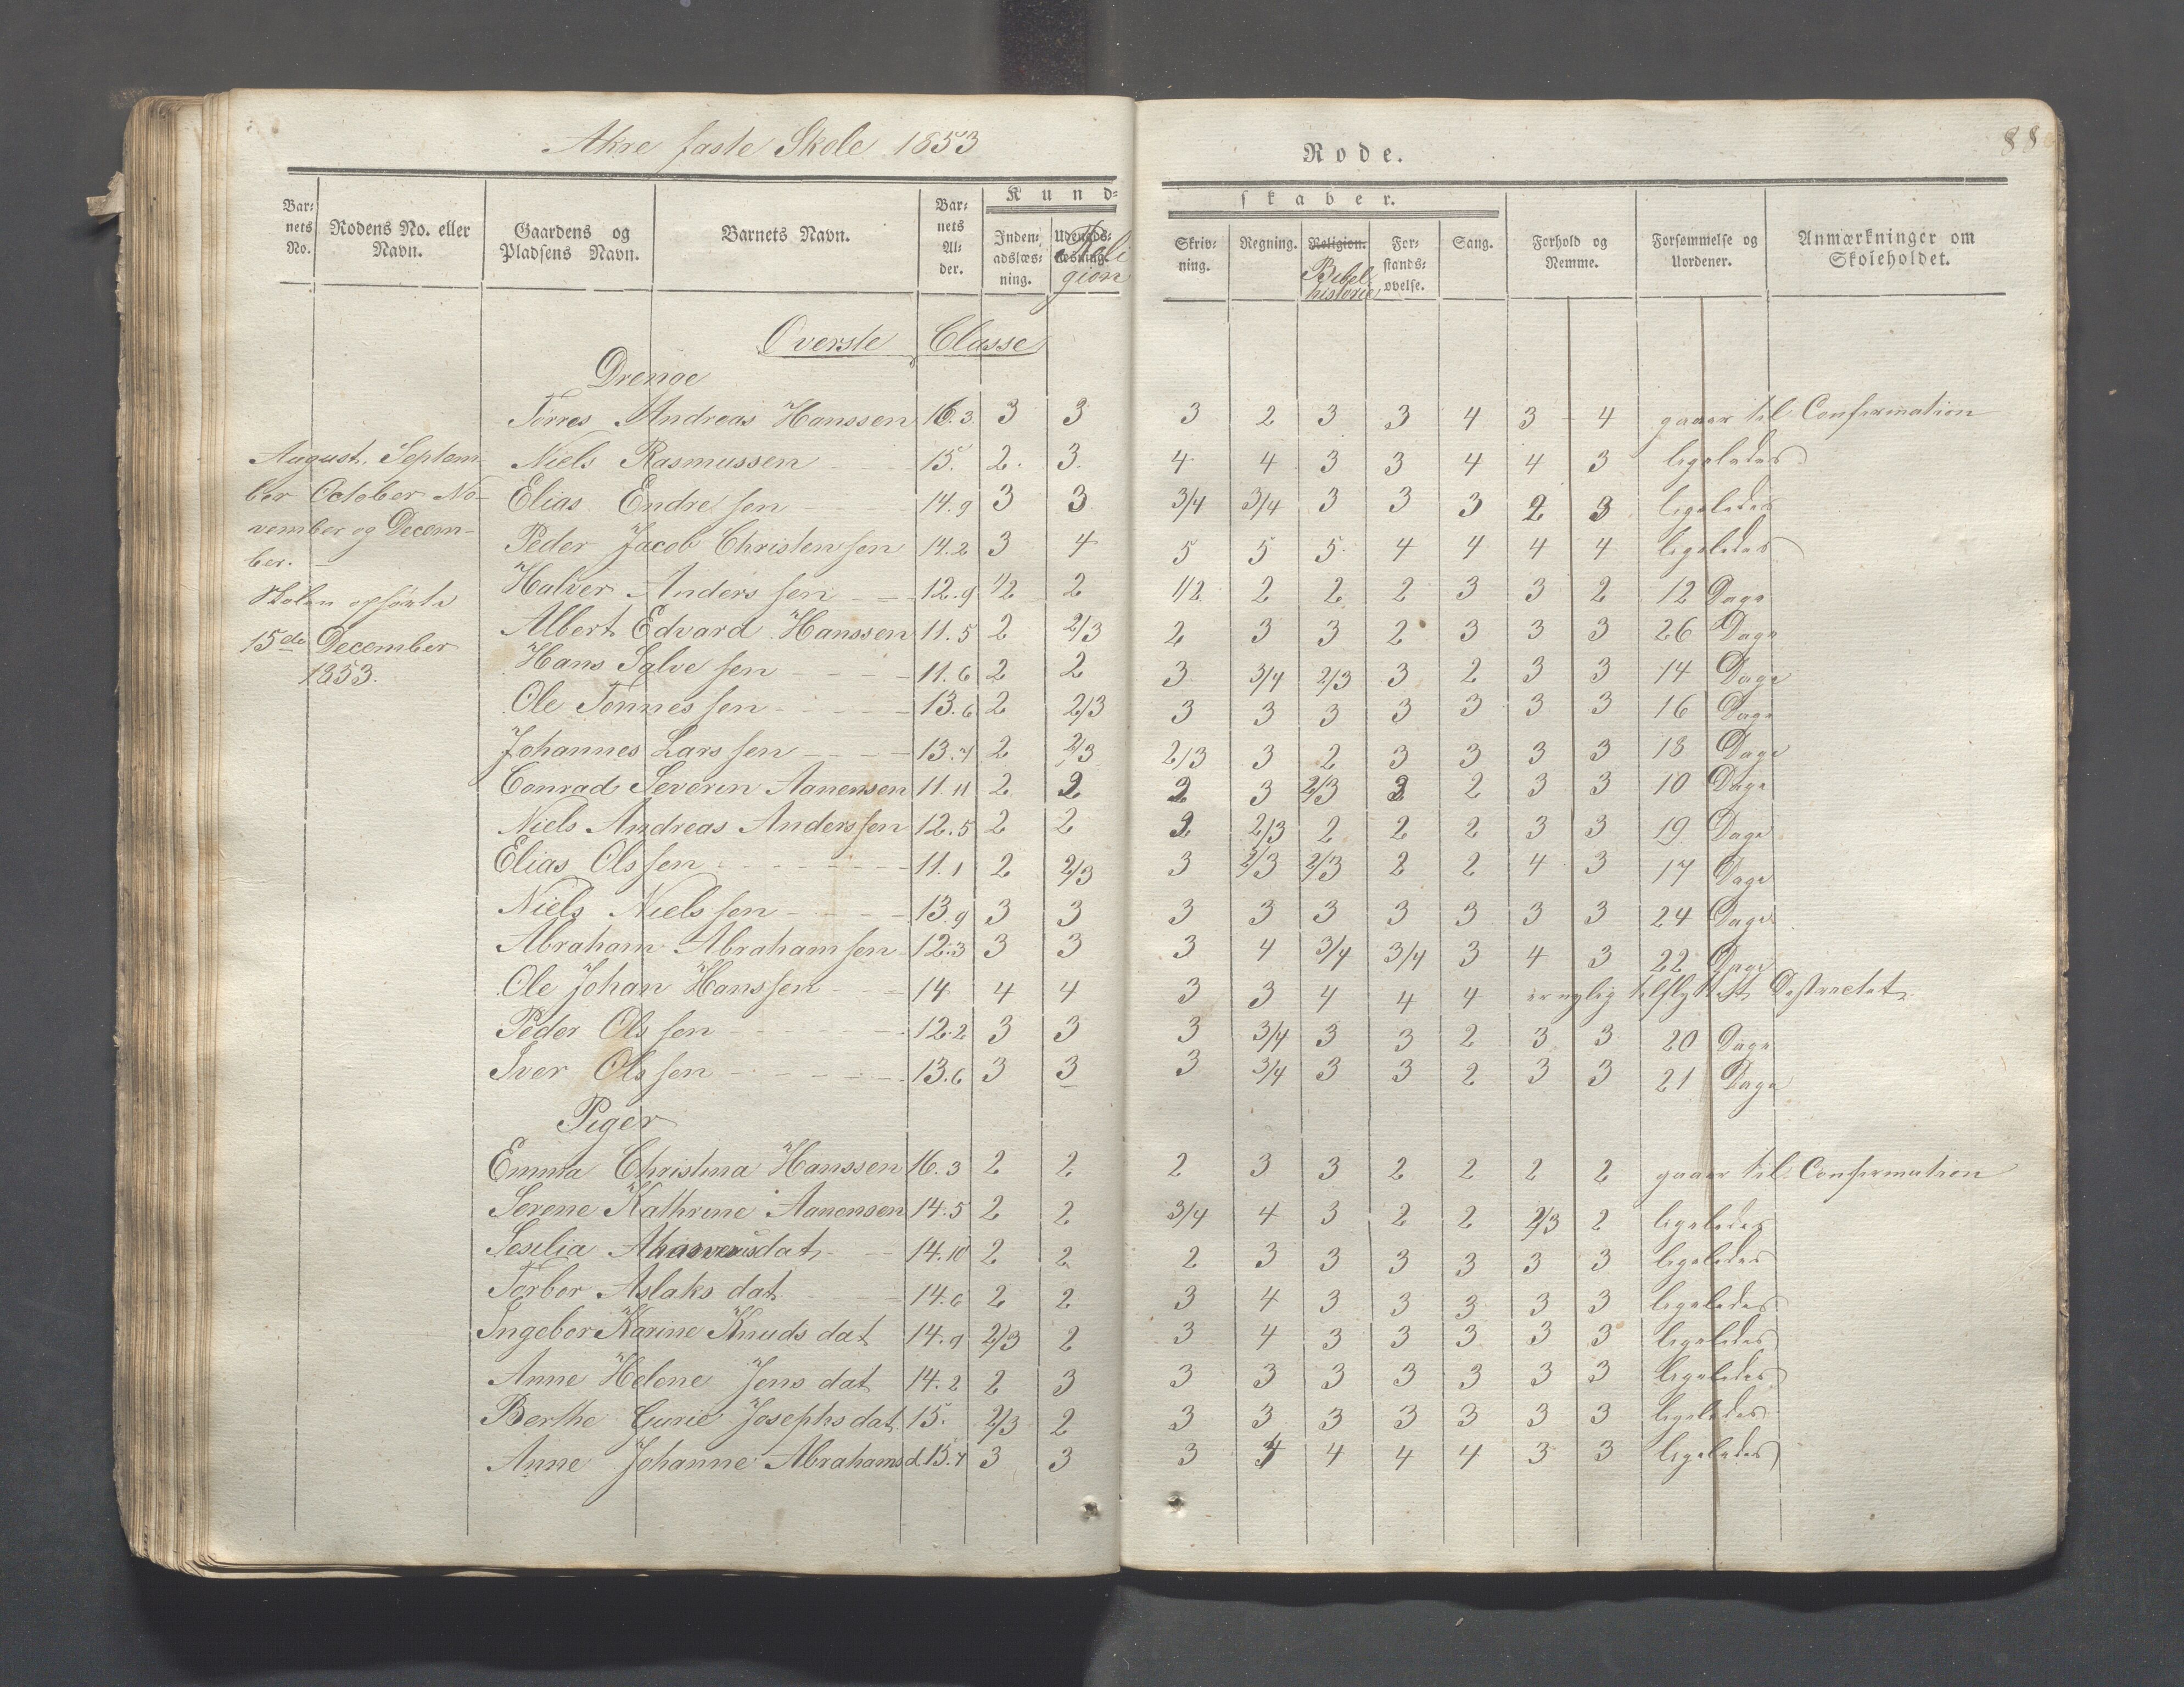 Akre faste Skole 1853
Rode.
88
Barnets No. Rodens No. eller Navn. Gaardens og Pladsens Navn. Barnets Navn. Barnets Alder. Kundskaber. Forhold og Nemme. Forsømmelse og Uordener. Anmærkninger om Skoleholdet.
Indenadslæsning. Udenadslæsning. Religion Skrivning. Regning. Religion. Bibelhistorie Forstandsøvelse. Sang.
Overste Classe
Drenge
Tørres Andreas Hanssen 16.3 3 3 3 2 3 3 4 3 4 gaaer til Confirmation
Niels Rasmussen 15. 2. 3. 4 4 3 3 4 4 3 ligeledes
Elias Endresen 14.9 3 3 3/4 3/4 3 3 3 2 3 ligeledes
Peder Jacob Christensen 14.2 3 4 5 5 5 4 4 4 4 ligeledes
Halver Anderssen 12.9 1/2 2 1/2 2 2 2 3 3 2 12 Dage
Albert Edvard Hanssen 11.5 2 2/3 2 3 3 2 3 3 3 26 Dage
Hans Salvesen 11.6 2 2 3 3/4 2/3 3 2 3 3 14 Dage
Ole Tønnessen 13.6 2 2/3 3 3 3 3 3 3 3 16 Dage
Johannes Larssen 13.4 2 2/3 2/3 3 2 3 3 3 3 18 Dage
Conrad Severin Aanensen 11.11 2 2 2 3 2/3 3 2 3 3 10 Dage
Niels Andreas Anderssen 12.5 2 2 2 2/3 2 2 2 3 3 19 Dage
Elias Olssen 11.1 2 2/3 3 2/3 2/3 2 2 4 3 17 Dage
Niels Nielssen 13.9 3 3 3 3 3 3 3 3 3 24 Dage
Abraham Abrahamsen 12.3 3 3 3 4 3/4 3/4 3 4 3 22 Dage
Ole Johan Hanssen 14 4 4 3 3 4 4 4 er nylig tilflyttet Districtet
Peder Olssen 12.2 3 3 3 3/4 3 3 2 3 3 20 Dage
Iver Olssen 13.6 3 3 3 3/4 3 3 2 3 3 21 Dage
August, Septem-
ber October No-
vember og Decem-
ber.
Skolen ophørte
15de December
1853.
Piger
Emma Christina Hanssen 16.3 2 2 2 3 3 2 2 2 2 gaaer til Confirmation
Serene Kathrine Aanensen 14.5 2 2 3/4 4 3 2 2 2/3 2 ligeledes
Sesilia Ahasverusdat 14.10 2 2 2 3 3 3 3 3 3 ligeledes
Torbor Aslaksdat 14.6 2 2 3 4 3 3 3 3 3 ligeledes
Ingebor Karine Knudsdat 14.9 2/3 2 3 4 3 3 3 3 3 ligeledes
Anne Helene Jensdat 14.2 2 3 3 3 3 3 3 3 3 ligeledes
Berthe Gurie Josephsdat 15. 2/3 2 3 3 3 3 3 3 3 ligeledes
Anne Johanne Abrahamsd. 15.4 3 3 3 4 4 4 4 3 3 ligeledes